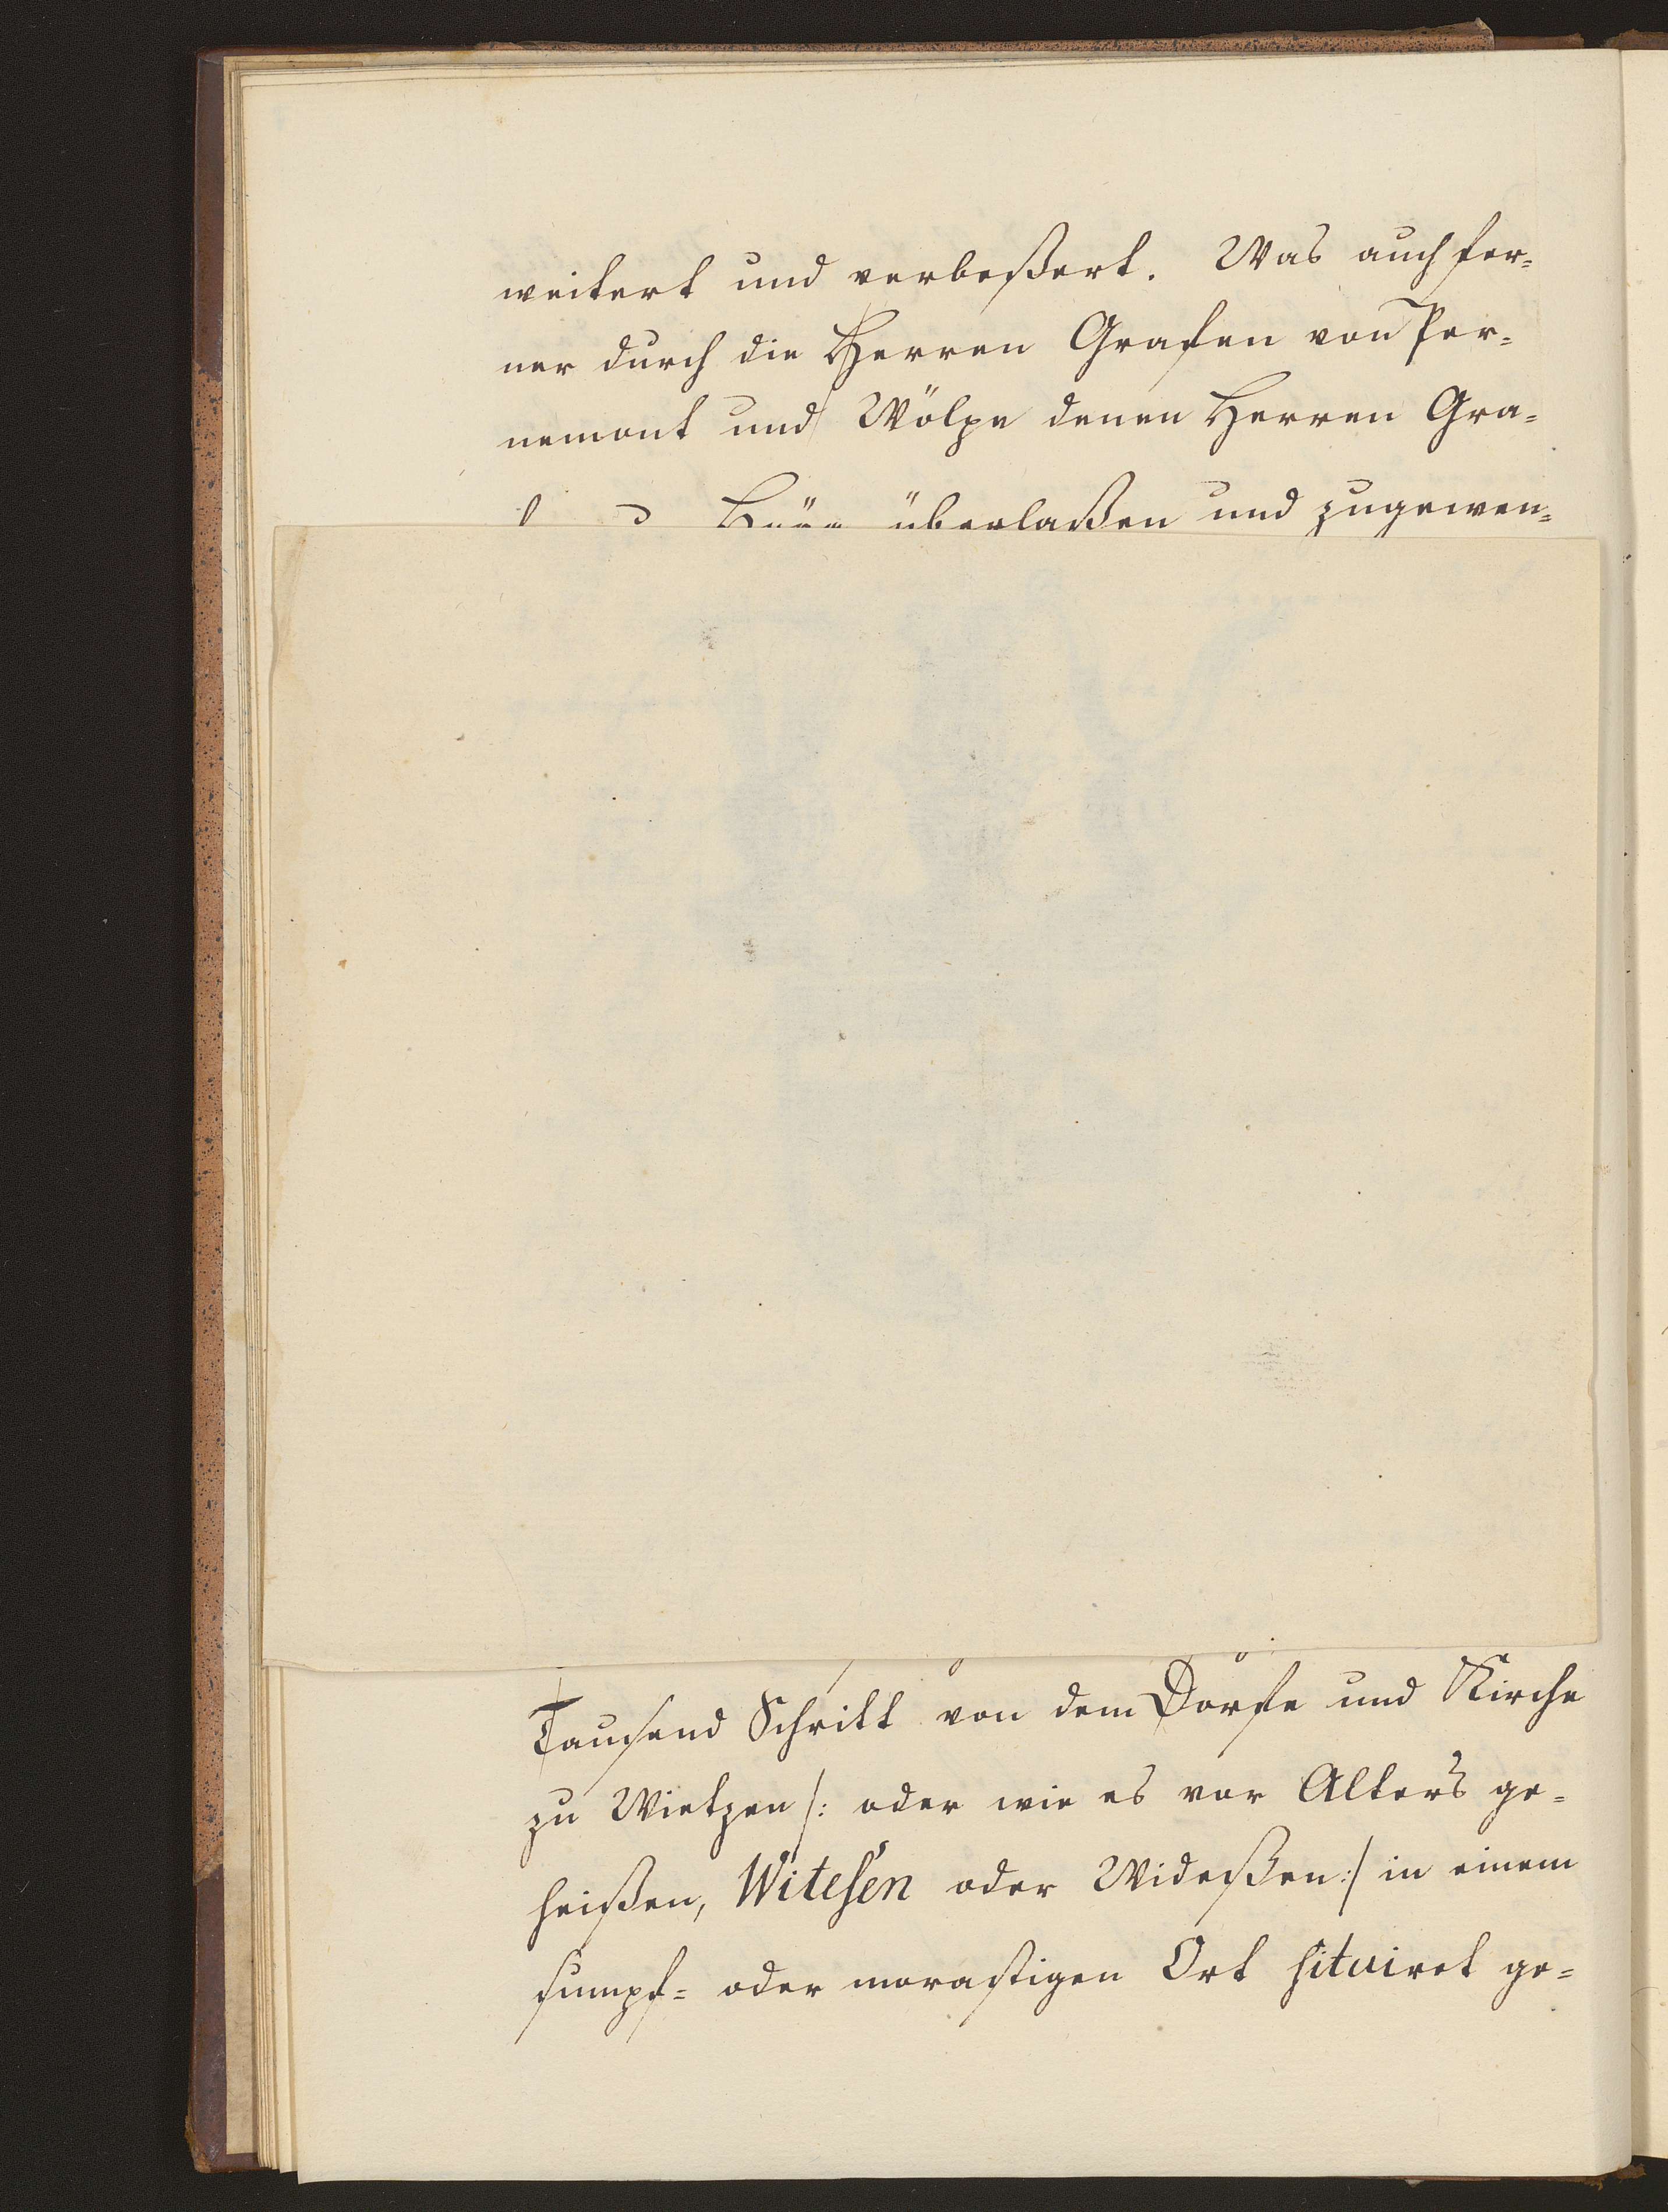 weitert und verbeßert. Was auch fer=
ner durch die Herren Grafen von Per=
nemont und Wölpe denen Herren Gra=
Hoya überlaßen und zugewen=
Tausend Schritt von dem Dorfe und Kirche
zu Wietzen /: oder wie es vor Alters ge=
heißen, Witesen oder Wideßen :/ in einem
sumpf= oder morastigen Ort situiret ge=